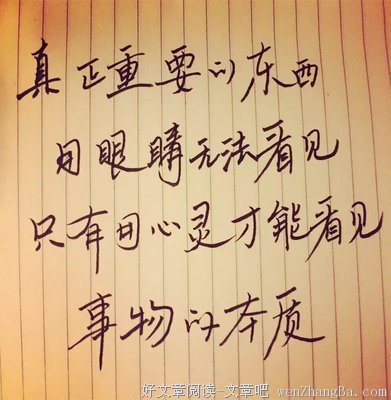 真正重要的东西
用眼睛无法看见
只有用心灵才能看见
事物的本质
好文章阅读-文章吧 wenZhangBa.com